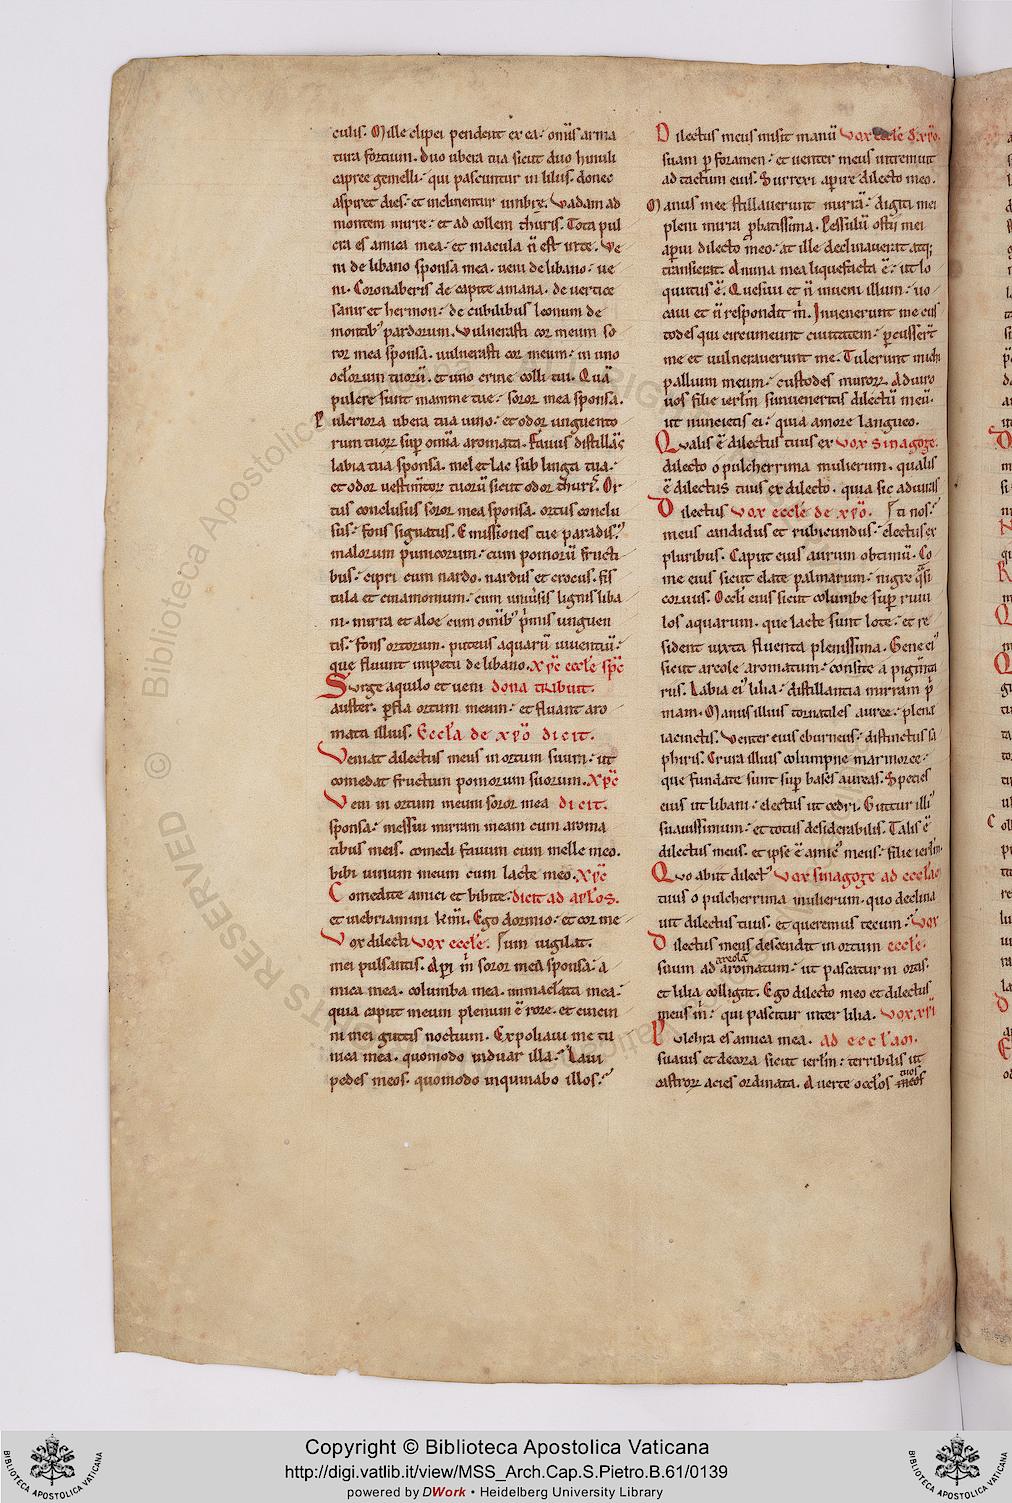 culis. Mille clipei pendent ex ea: om̅is arma
tura fortium. Duo ubera tua sicut duo hinuli
capree gemelli: qui pascuntur in liliis. donec
aspiret dies: et inclinentur umbre. Vadam ad
montem mirre: et ad collem thuris. Tota pul
cra es amica mea: et macula n̅ est in te. Ve
ni de libano sponsa mea. ueni de libano: ue
ni. Coronaberis de capite amana. de uertice
sanir et hermon: de cubilibus leonum de
montib' pardorum. Vulnerasti cor meum so
ror mea sponsa. uulnerasti cor meum: in uno
oclorum tuoru̅. et uno crine colli tui. Qua̅
pulcre sunt mamme tue: soror mea sponsa.
Pulcriora ubera tua uino: et odor unguento
rum tuoꝝ sup̅ om̅ia aromata. Fauus distilla̅s
labia tua sponsa. mel et lac sub lingua tua:
et odor uestim̅toꝝ tuoru̅ sicut odor thuris. Or
tus conclusus soror mea sponsa. ortus conclu
sus: fons signatus. Emissiones tue paradis'
malorum punicorum: cum pomoru̅ fructi
bus: cipri cum nardo. nardus et crocus. fis
tula et cinamomum: cum uniu̅sis lignis liba
ni. mirra et aloe cum om̅ib' p̅mis unguen
tis: fons ortorum. puteus aquaru̅ uiuentiu̅:
que fluunt impetu de libano. Xp̅c eccl̅e sp̅c
Surge aquilo et ueni dona tribuit.
auster. p̅fla ortum meum: et fluant aro
mata illius. Eccl̅a de xp̅o dicit.
Veniat dilectus meus in ortum suum: ut
comedat fructum pomorum suorum. Xp̅c
Veni in ortum meum soror mea dicit.
sponsa: messui mirram meam cum aroma
tibus meis. comedi fauum cum melle meo.
bibi uinum meum cum lacte meo. Xp̅c
Comedite amici et bibite: dicit ad ap̅l̅os.
et inebriamini km̅i. Ego dormio: et cor me
Vox dilecti vox eccl̅e. um uigilat.
mei pulsantis. Ap̅i m̅ soror mea sponsa: a
mica mea. columba mea. immaculata mea:
quia caput meum plenum e̅ rore. et cincin
ni mei guttis noctium. Expoliaui me tu
nica mea. quomodo induar illa: Laui
pedes meos. quomodo inquinabo illos:
Dilectus meus misit manu̅ vox eccl̅e d̅ xp̅o.
suam p̅ foramen: et uenter meus intremuit
ad tactum eius. Surrexi aperire dilecto meo.
Manus mee stillauerunt mirra̅: digiti mei
pleni mirra p̅batissima. Pessulu̅ ostii mei
aperui dilecto meo: at ille declinauerat atq;
transierat. Anima mea liquefacta e̅: ut lo
quutus e̅. Quesiui et n̅ inueni illum: uo
caui et n̅ respondit m̅. Inuenerunt me cus
todes qui circumeunt ciuitatem: p̅cusser̅t
me et uulnerauerunt me. Tulerunt michi
pallium meum: custodes muroꝝ. Adiuro
uos filie ierl̅m si inueneritis dilectu̅ meu̅.
ut nuncietis ei: quia amore langueo.
Qualis e̅ dilectus tuus ex vox sinagoge.
dilecto o pulcherrima mulierum. qualis
e̅ dilectus tuus ex dilecto. quia sic adiuras
Dilectus vox eccl̅e de xp̅o. ti nos:
meus candidus et rubicundus: electus ex
pluribus. Caput eius aurum obtimu̅. Co
me eius sicut elate palmarum: nigre q̅si
coruus. Occl̅i eius sicut columbe sup̅ riuu
los aquarum. que lacte sunt lote: et re
sident iuxta fluenta plenissima. Gene ei'
sicut areole aromatum: consite a pigm̅ta
riis. Labia ei' lilia: distillantia mirram p̅
mam. Manus illius tornatiles auree: plena
iacinctis. Venter eius eburneus: distinctus sa
phiris. Crura illius columpne marmoree:
que fundate sunt sup̅ bases aureas. Species
eius ut libani: electus ut cedri. Guttur illi'
suauissimum: et totus desiderabilis. Talis e̅
dilectus meus. et ipse e̅ amic' meus: filie ierl̅m.
Quo abiit dilect' vox sinagoge ad eccl̅ia
tuus o pulcherrima mulierum. quo declina
uit dilectus tuus. et queremus tecum: vox
Dilectus meus descendit in ortum eccl̅e.
areola
suum ad aromatum: ut pascatur in ortis.
et lilia colligat. Ego dilecto meo et dilectus
meus m̅: qui pascitur inter lilia. Vox xp̅i
Pulchra es amica mea. ad eccl̅am.
suauis et decora sicut ierl̅m: terribilis ut
castroꝝ acies ordinata. Auerte occl̅os meos
tuos
Copyright © Biblioteca Apostolica Vaticana
http://digi.vatlib.it/view/MSS_Arch.Cap.S.Pietro.B.61/0139
powered by DWork • Heidelberg University Library